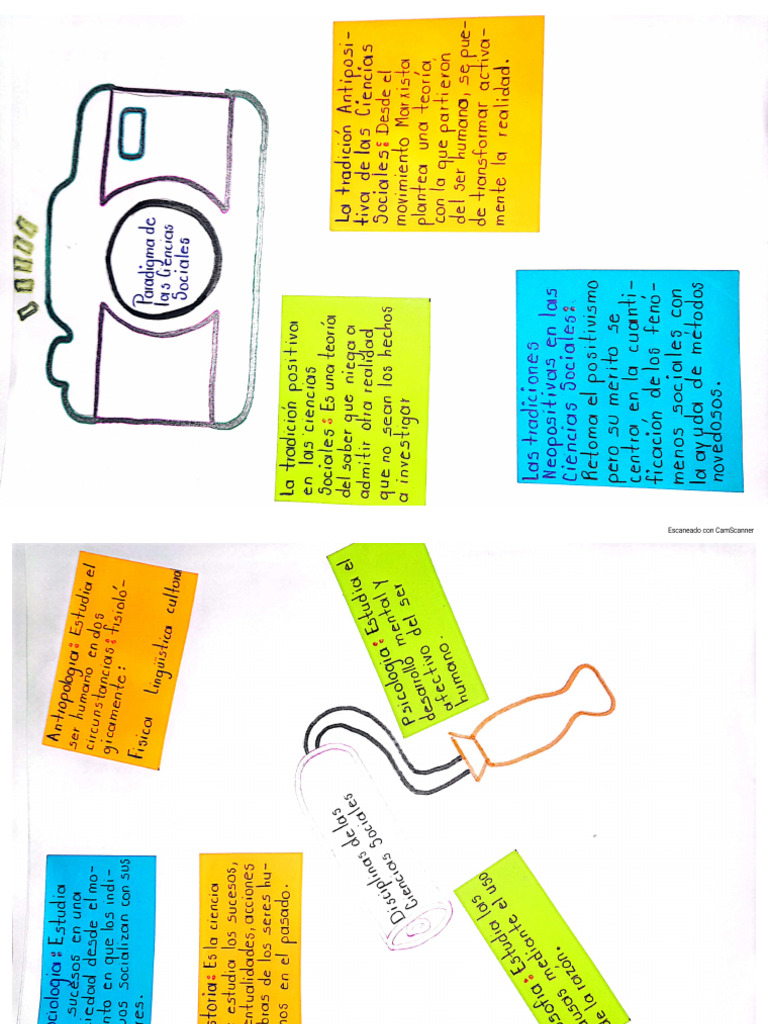 Paradigma de
las Ciencias
Sociales
La tradición Antiposi-
tiva de las Ciencias
Sociales: Desde el
movimiento Marxista
plantea una teoría
con la que partieron
del ser humano, se pue-
de transformar activa-
mente la realidad.
La tradición positiva
en las ciencias
Sociales: Es una teoría
del saber que niega a
admitir otra realidad
que no sean los hechos
a investigar
Las tradiciones
Neopositivas en las
Ciencias Sociales:
Retoma el positivismo
pero su mérito se
centra en la cuanti-
ficación de los fenó-
menos sociales con
la ayuda de métodos
novedosos.
Escaneado con CamScanner
Antropologia: Estudia el
ser humano en dos
circunstancias: fisioló-
gicamente:
Fisica Lingüistica cultural
Psicologia: Estudia el
desarrollo mental y
afectivo del ser
humano.
Disciplinas de las
Ciencias Sociales
ociologia: Estudia
sucesos en una
iedad desde el mo-
nto en que los indi-
uos socializan con sus
res.
storia: Es la ciencia
estudia los sucesos,
entualidades, acciones
bras de los seres hu-
nos en el pasado.
sofia: Estudia las
ausas mediante el uso
de la razón.